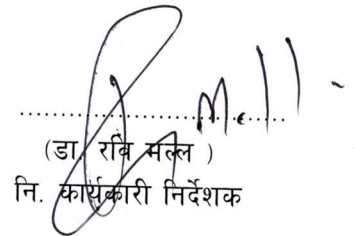 (डा रवि मल्ल )
नि. कार्यकारी निर्देशक